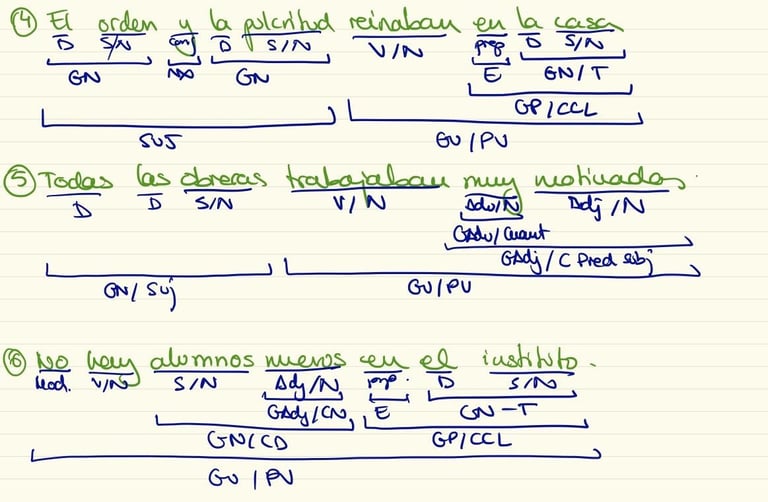 ④ El orden y la pulcritud reinaban en la casa
D S/N conj D S/N V/N prep D S/N
GN nxo GN E GN/T
GP/CCL
SUJ GV/PV
⑤ Todas las obreras trabajaban muy motivadas.
D D S/N V/N Adv/N Adj/N
GAdv/Cuant
GAdj/C Pred subj
GN/Suj GV/PV
⑥ No hay alumnos nuevos en el instituto.
Mod. V/N S/N Adj/N prep. D S/N
GAdj/CN E GN-T
GN/CD GP/CCL
GV/PV